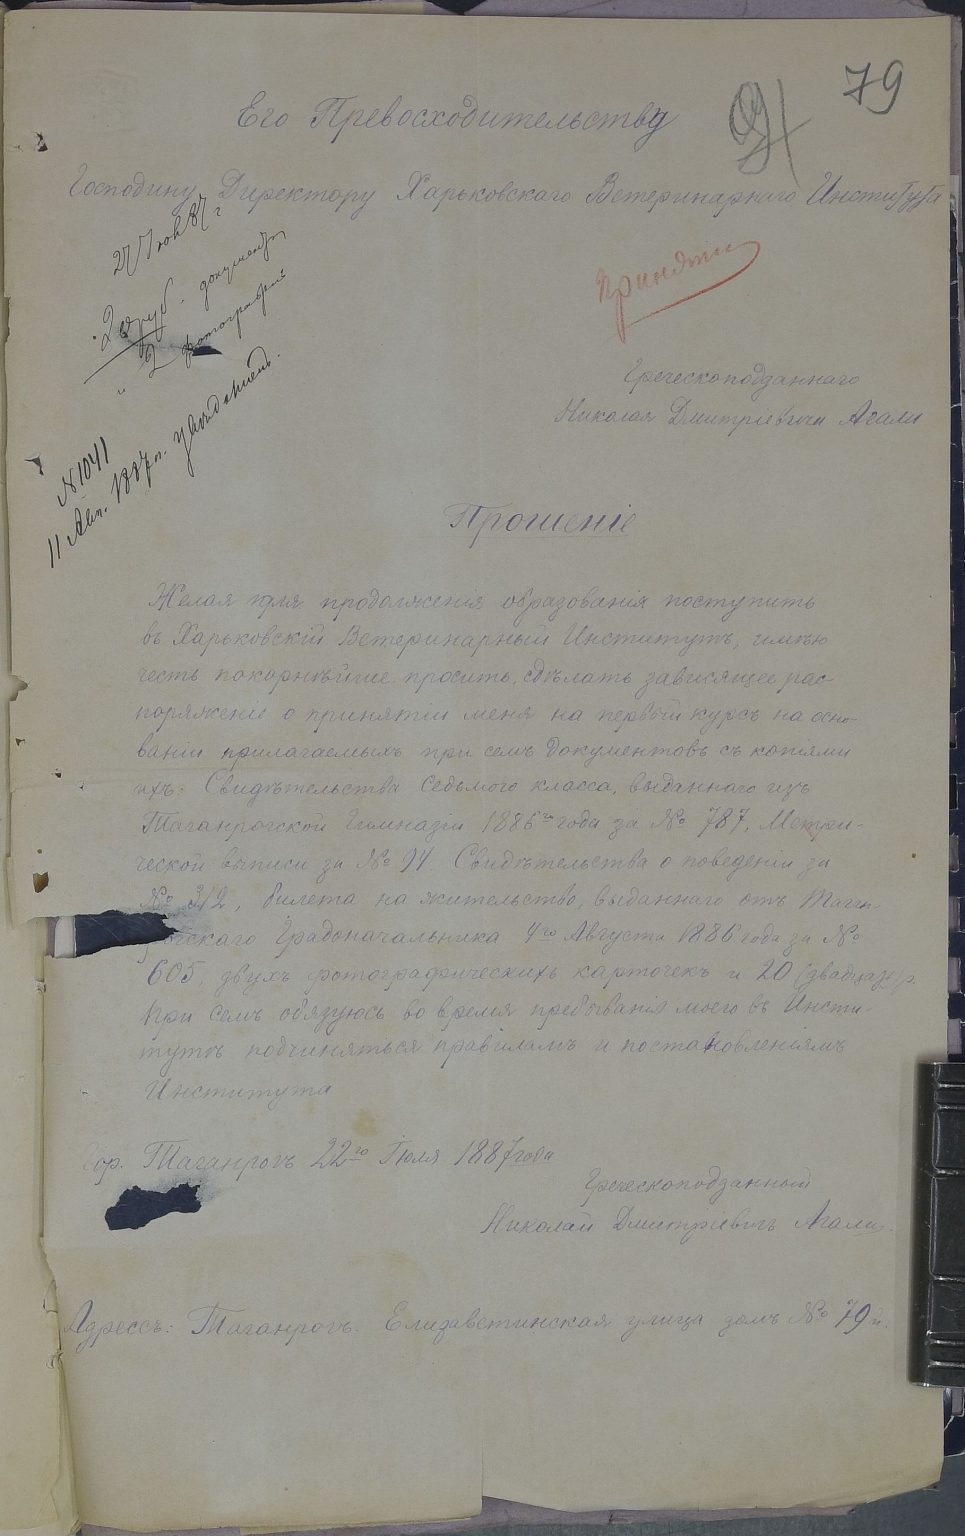 79
Его Превосходительству
Господину Директору Харьковскаго Ветеринарнаго Института
27 Іюля 87 г.
20 руб. документы
2 фотографіи
№ 1041
11 Авг. 1887 г. увѣдомленъ.
Принять
Греческоподданнаго
Николая Дмитріевича Агали
Прошеніе
Желая для продолженія образованія поступить
въ Харьковскій Ветеринарный Институтъ, имѣю
честь покорнѣйше просить, сдѣлать зависящее рас-
поряженіе о принятіи меня на первый курсъ на осно-
ваніи прилагаемыхъ при семъ документовъ съ копіями
ихъ: Свидѣтельства седьмого класса, выданнаго изъ
Таганрогской Гимназіи 1886го года за № 787, Метри-
ческой выписи за № 94. Свидѣтельства о поведеніи за
№ 312, билета на жительство, выданнаго отъ Таган-
рогскаго Градоначальника 4го Августа 1886 года за №
605, двухъ фотографическихъ карточекъ и 20 (двадцать) р.
При семъ обязуюсь во время пребыванія моего въ Инсти-
тутѣ подчиняться правиламъ и постановленіямъ
Института
Гор. Таганрогъ 22го Іюля 1887 года
Греческоподданный
Николай Дмитріевичъ Агали.
Адрессъ: Таганрогъ. Елизаветинская улица домъ № 79й.